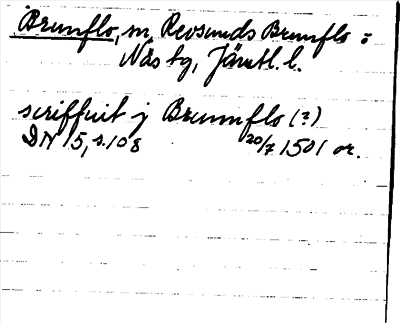 Brunflo, sn, Revsunds Brunflo o
Näs tg, Jämtl. l.
scriffuit j Brumflo (?)
DN 15, s. 108 20/7 1501 or.